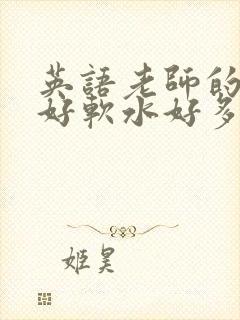 英語老師的
好軟水好多
姬昊